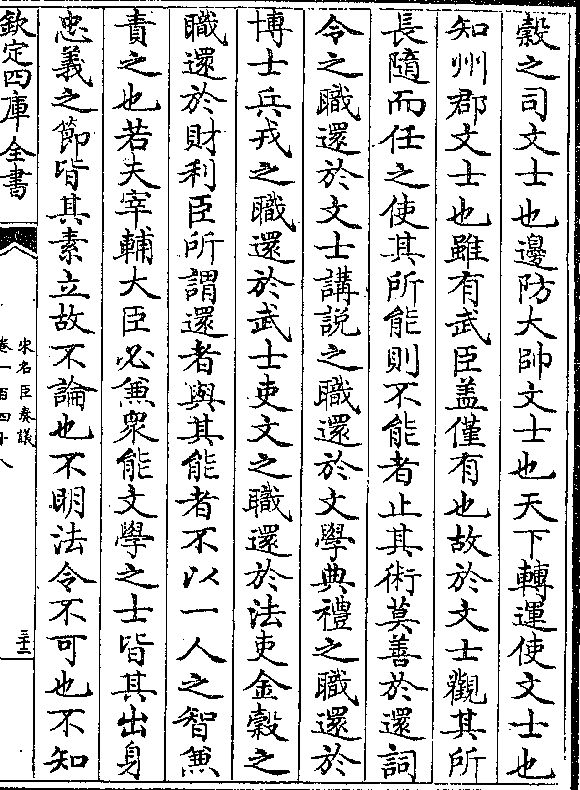 穀之司文士也邊防大帥文士也天下轉運使文士也
知州郡文士也雖有武臣盖僅有也故於文士觀其所
長隨而任之使其所能則不能者止其術莫善於還詞
令之職還於文士講説之職還於文學典禮之職還於
博士兵戎之職還於武士吏文之職還於法吏金穀之
職還於財利臣所謂還者與其能者不以一人之智兼
責之也若夫宰輔大臣必兼衆能文學之士皆其出身
忠義之節皆其素立故不論也不明法令不可也不知
欽定四庫全書
宋名臣奏議
卷一百四十八
三十二